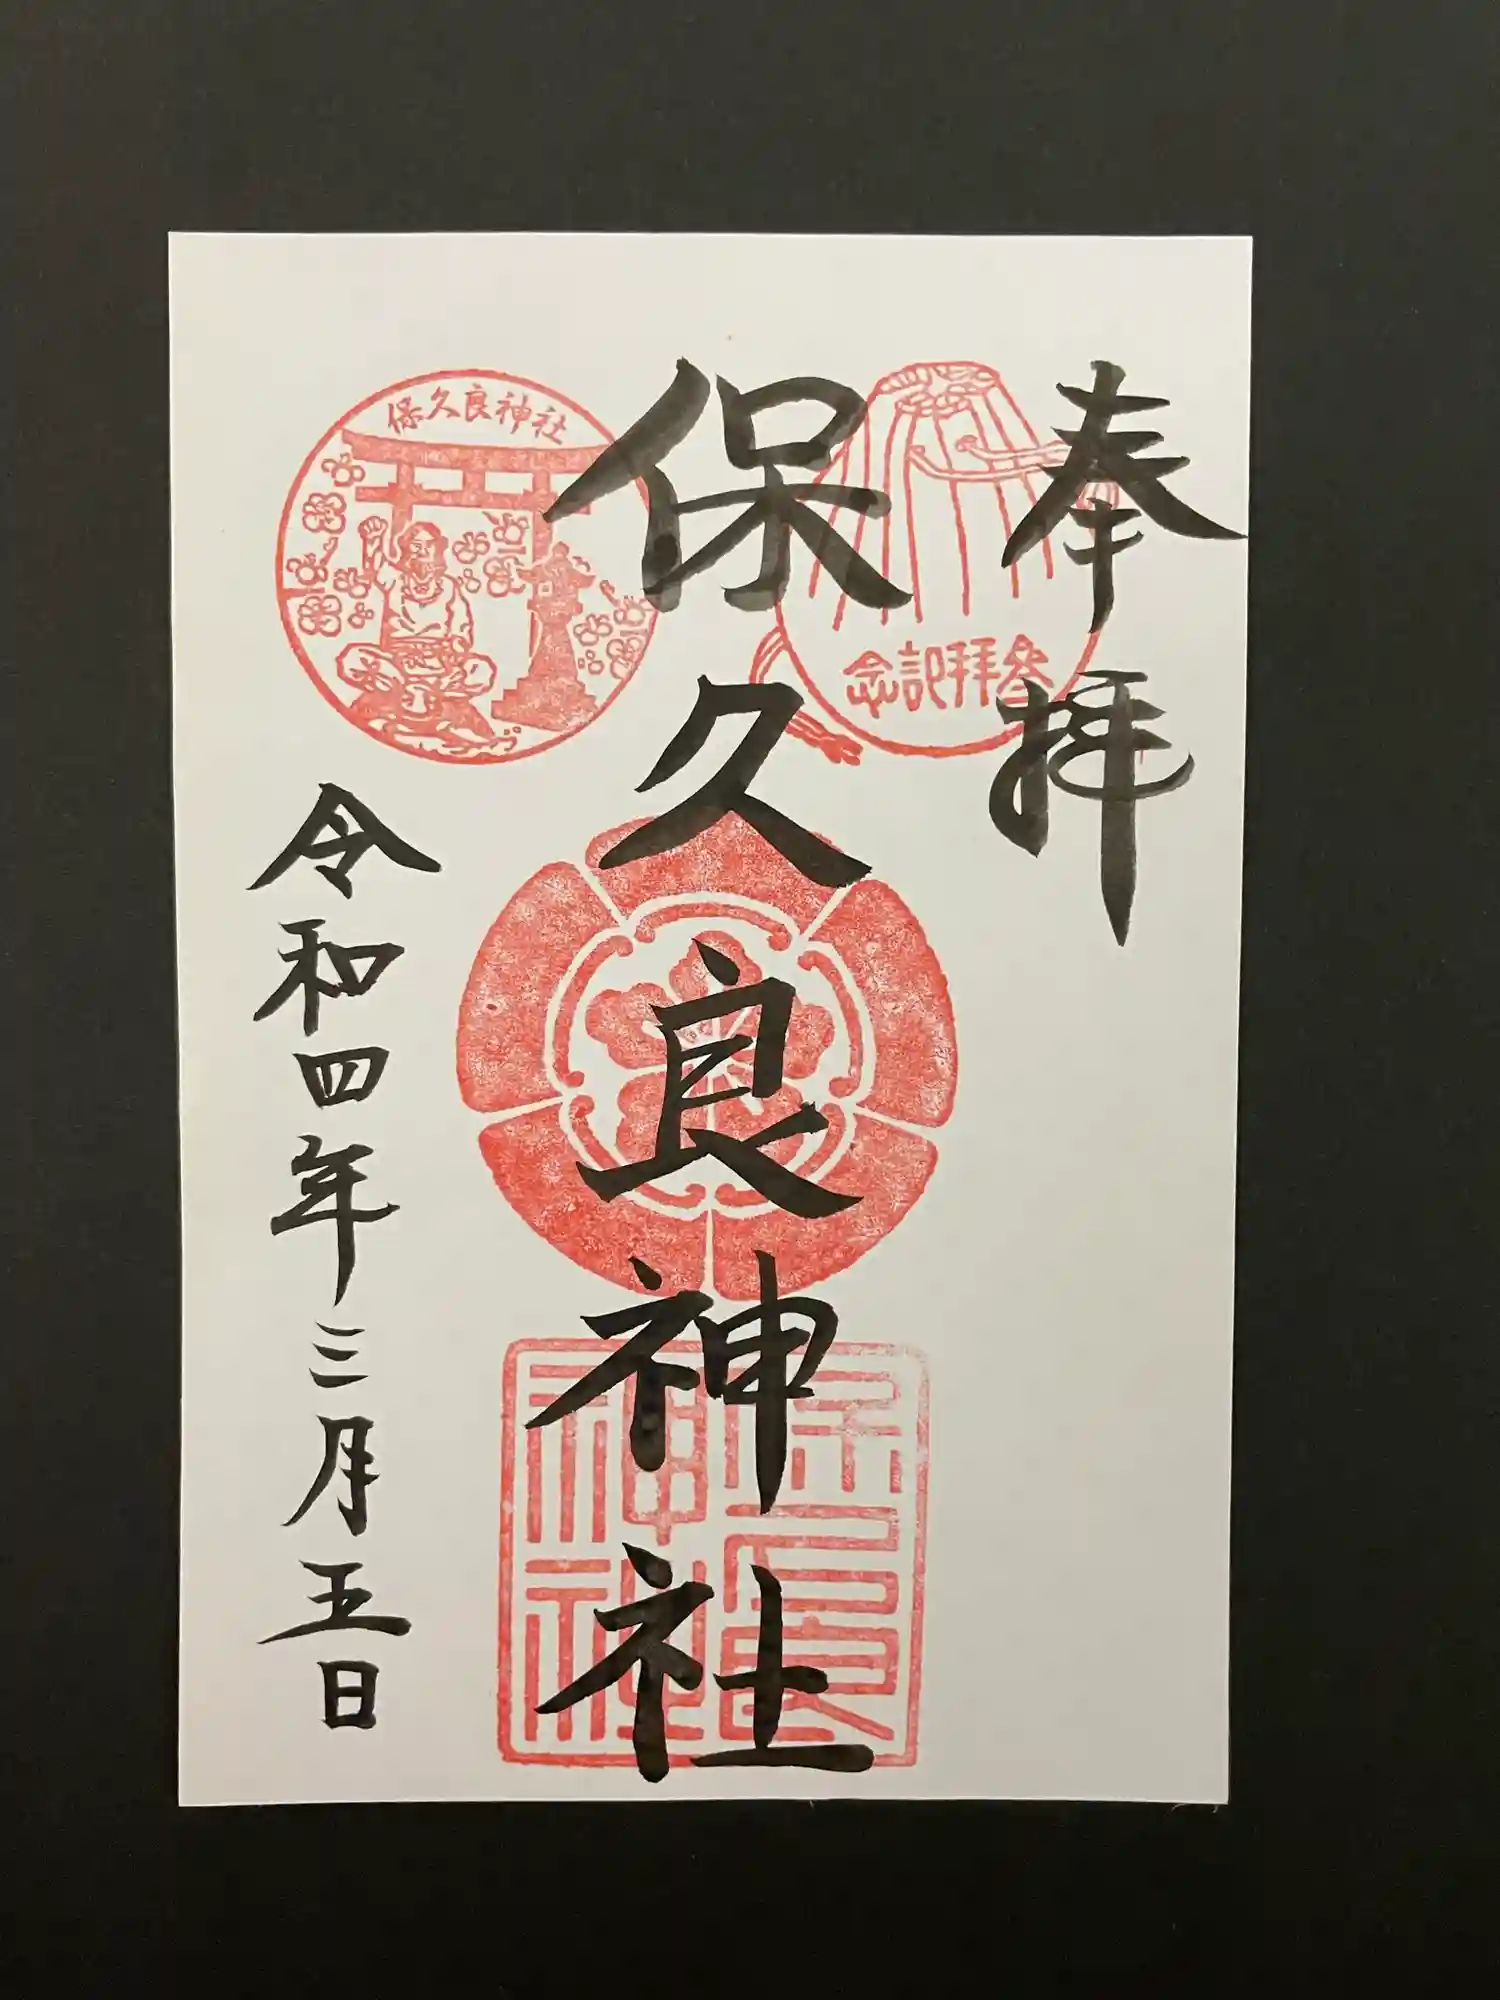 奉拝
参拝記念
保久良神社
保久良神社
保久良神社
令和四年三月五日